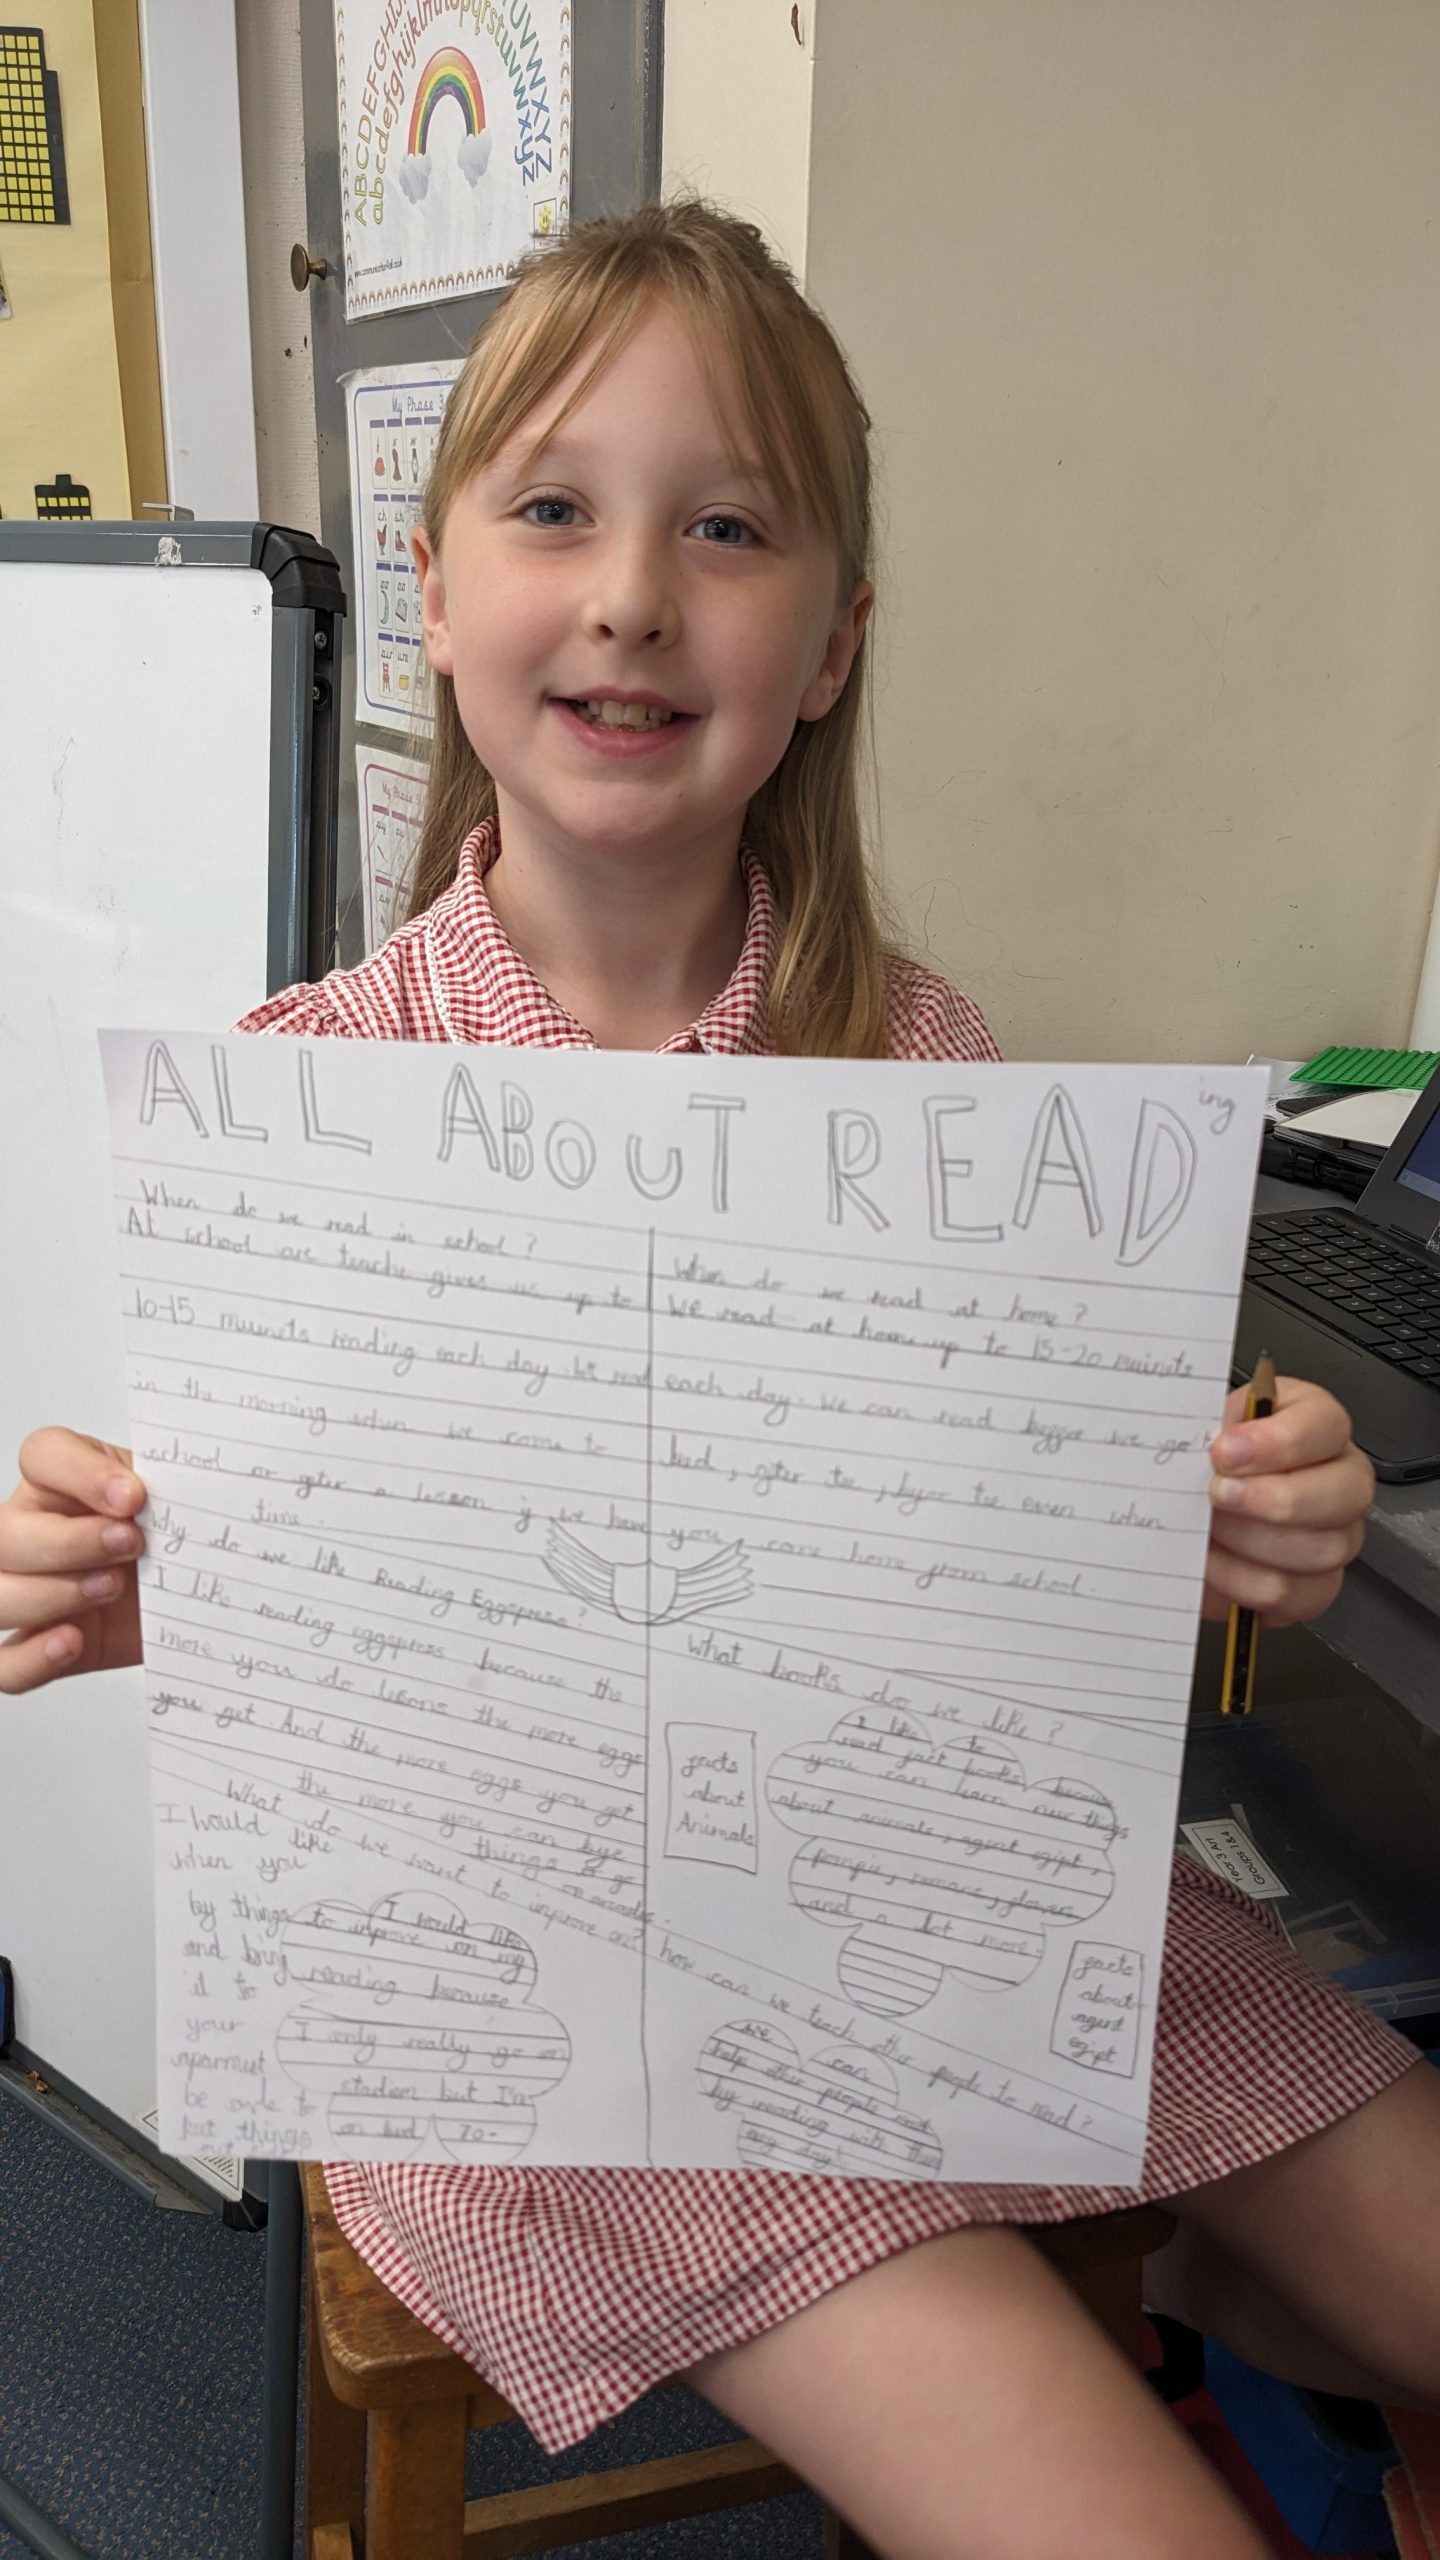 ABCDEFGHIJ
abcdefghijklmnopqrstuvwxyz
UVWXYZ
www.communication4all.co.uk
My Phase 3
ch
oo
air ure
My Phase
ALL ABOUT READing
When do we read in school?
At school are teache gives us up to
10-15 muinets reading each day. We read
in the morning when we come to
school or after a lesson if we have
time.
When do we read at home?
We read at home up to 15-20 muinets
each day. We can read before we go to
bed, after tee, before tee even when
you come home from school.
Why do we like Reading Eggspress?
I like reading eggspress because the
more you do lesons the more eggs
you get. And the more eggs you get
the more you can bye
things or go
on arcade.
What books do we like?
facts
about
Animals
I like to
read fact books because
you can learn new things
about animals, agent egipt,
pompy, romans, flowers
and a lot more.
facts
about
agent
egipt
What do we want to improve on?
I would like
when you
by things
and bring
it to
your
aparmut
be able to
put things
I would like
to improve on my
reading because
I only really go on
stadiem but I'm
on
70-
how can we teach other people to read?
we can
help other people read
by reading with them
evry day!
Year 3 Art
Groups 1&4